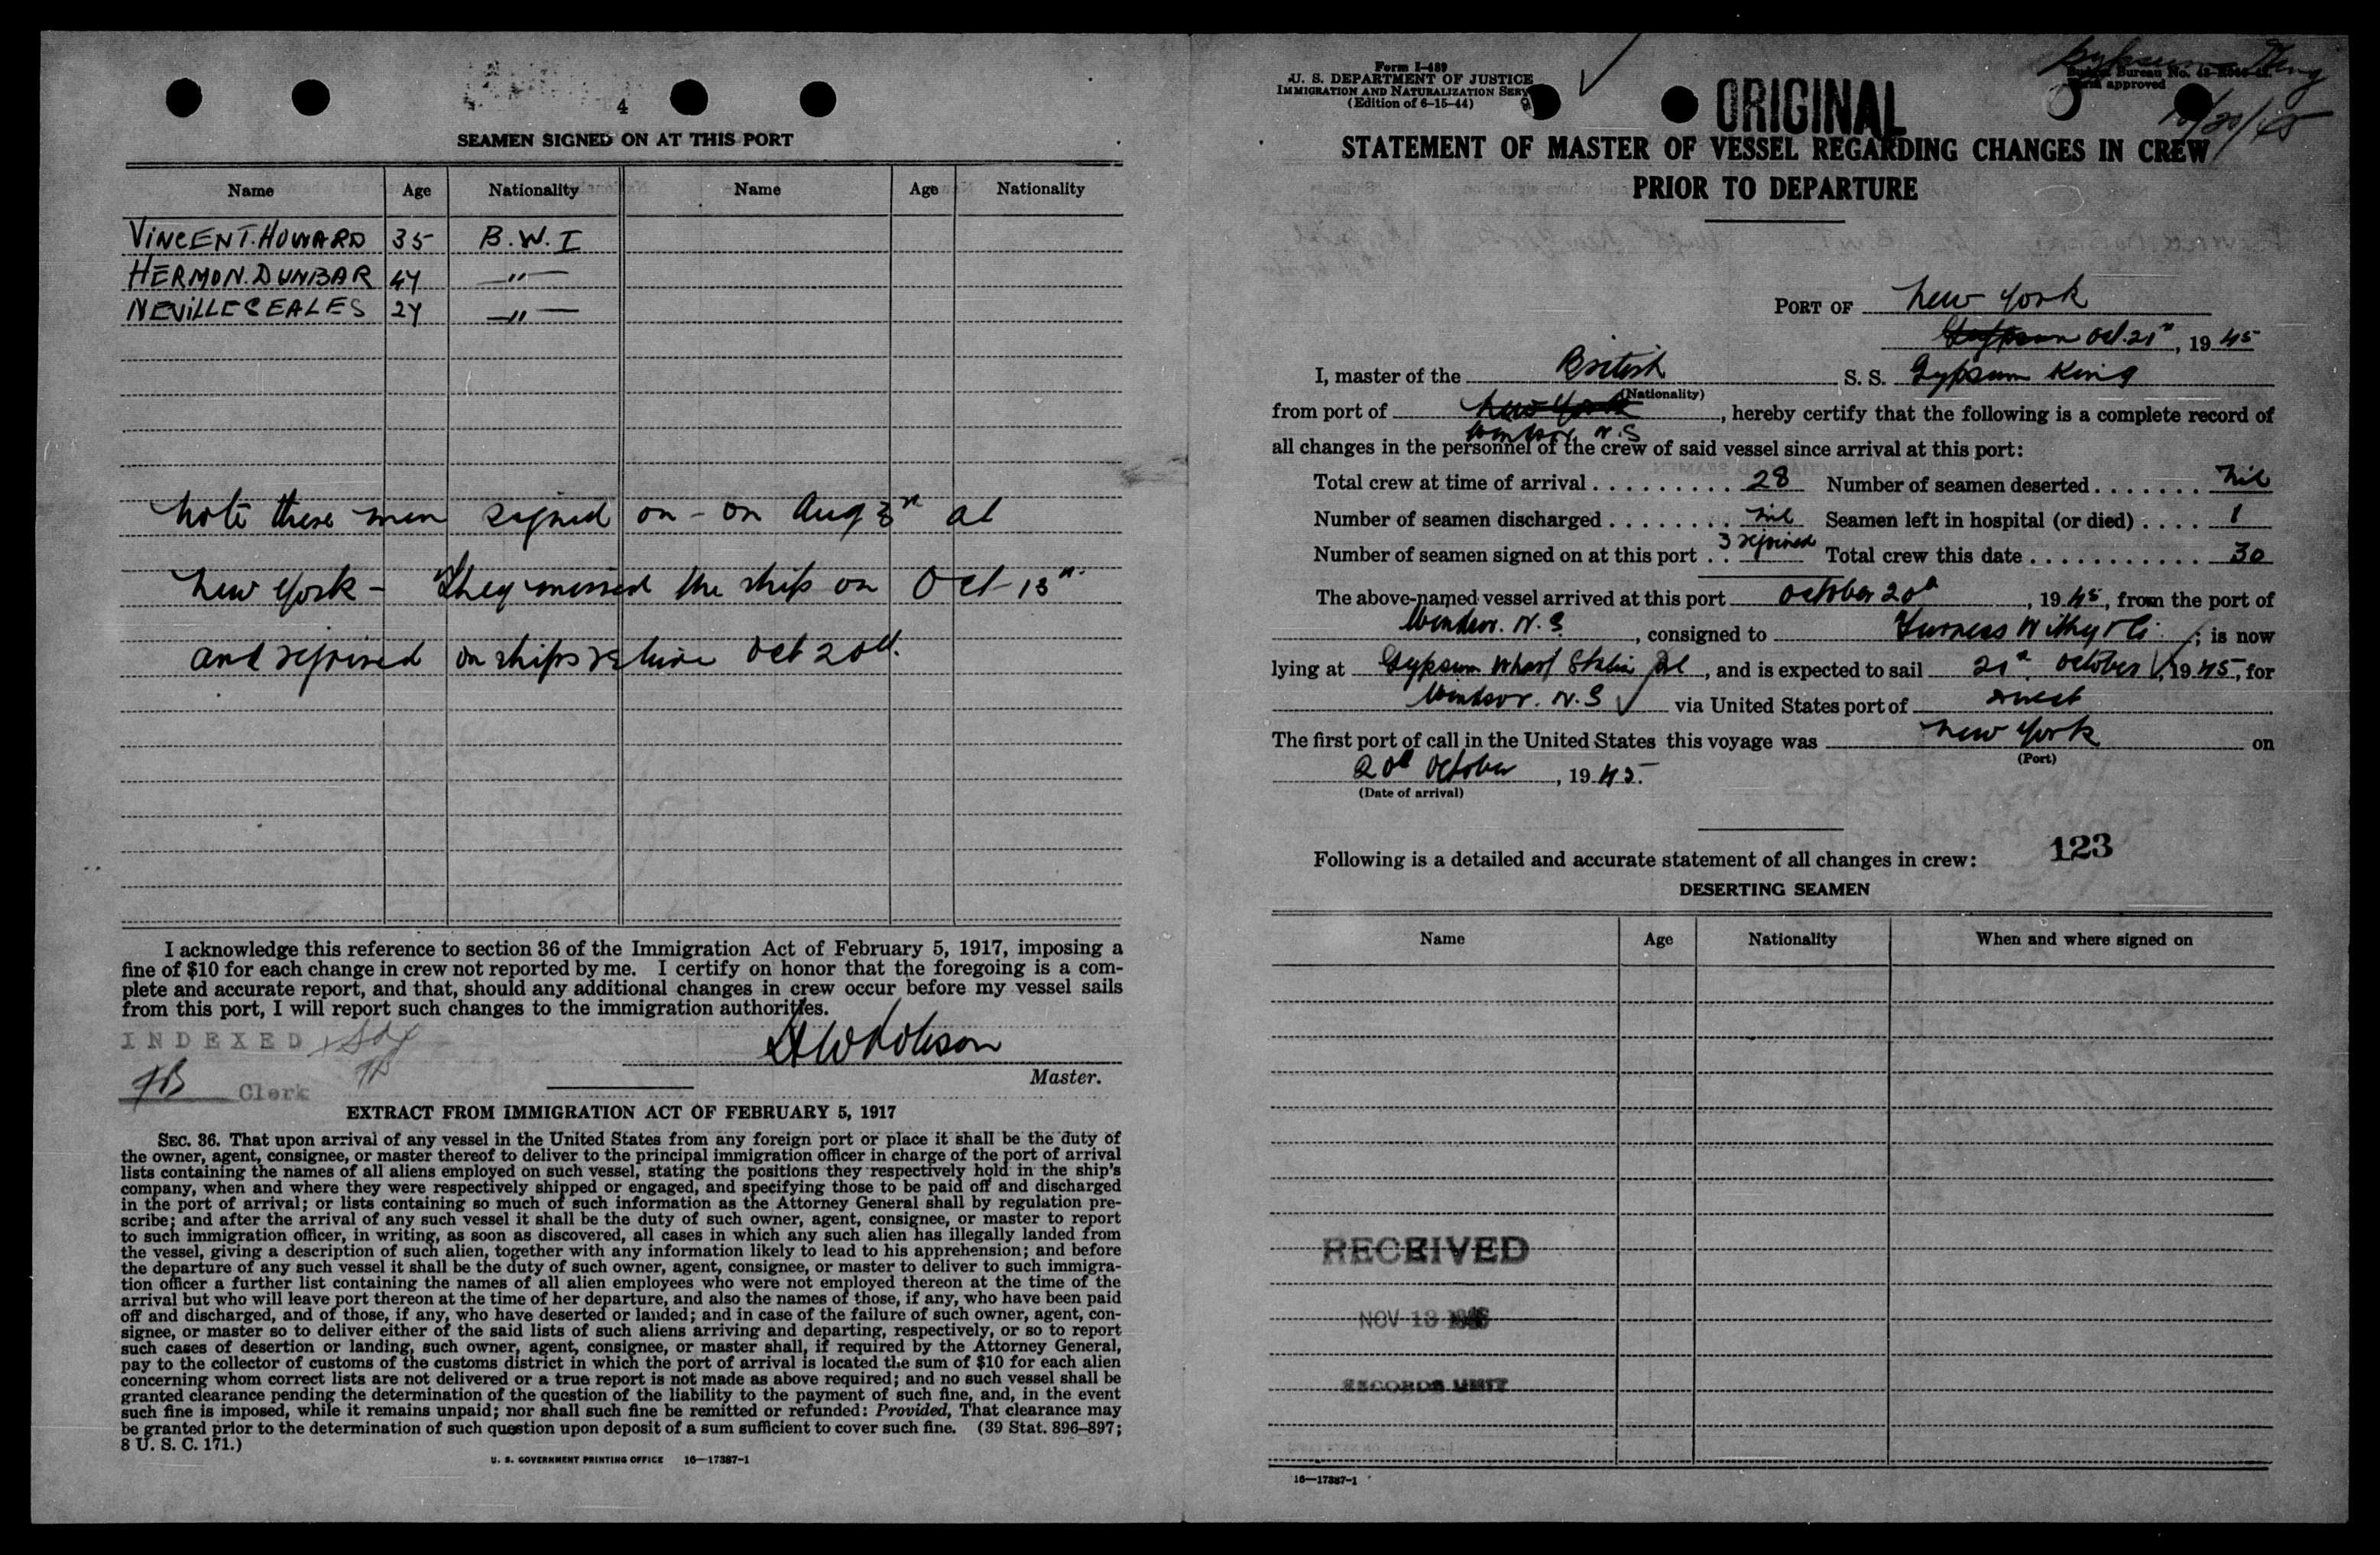 4
SEAMEN SIGNED ON AT THIS PORT
Name Age Nationality Name Age Nationality
VINCENT. HOWARD 35 B.W.I
HERMON. DUNBAR 44 —"—
NEVILLE SEALES 24 —"—
note these men signed on - on Aug 3rd at
New York - They missed the ship on Oct 13th
and rejoined on ships return Oct 20th.
I acknowledge this reference to section 36 of the Immigration Act of February 5, 1917, imposing a
fine of $10 for each change in crew not reported by me. I certify on honor that the foregoing is a com-
plete and accurate report, and that, should any additional changes in crew occur before my vessel sails
from this port, I will report such changes to the immigration authorities.
INDEXED
Clerk
Master.
EXTRACT FROM IMMIGRATION ACT OF FEBRUARY 5, 1917
SEC. 36. That upon arrival of any vessel in the United States from any foreign port or place it shall be the duty of
the owner, agent, consignee, or master thereof to deliver to the principal immigration officer in charge of the port of arrival
lists containing the names of all aliens employed on such vessel, stating the positions they respectively hold in the ship's
company, when and where they were respectively shipped or engaged, and specifying those to be paid off and discharged
in the port of arrival; or lists containing so much of such information as the Attorney General shall by regulation pre-
scribe; and after the arrival of any such vessel it shall be the duty of such owner, agent, consignee, or master to report
to such immigration officer, in writing, as soon as discovered, all cases in which any such alien has illegally landed from
the vessel, giving a description of such alien, together with any information likely to lead to his apprehension; and before
the departure of any such vessel it shall be the duty of such owner, agent, consignee, or master to deliver to such immigra-
tion officer a further list containing the names of all alien employees who were not employed thereon at the time of the
arrival but who will leave port thereon at the time of her departure, and also the names of those, if any, who have been paid
off and discharged, and of those, if any, who have deserted or landed; and in case of the failure of such owner, agent, con-
signee, or master so to deliver either of the said lists of such aliens arriving and departing, respectively, or so to report
such cases of desertion or landing, such owner, agent, consignee, or master shall, if required by the Attorney General,
pay to the collector of customs of the customs district in which the port of arrival is located the sum of $10 for each alien
concerning whom correct lists are not delivered or a true report is not made as above required; and no such vessel shall be
granted clearance pending the determination of the question of the liability to the payment of such fine, and, in the event
such fine is imposed, while it remains unpaid; nor shall such fine be remitted or refunded: Provided, That clearance may
be granted prior to the determination of such question upon deposit of a sum sufficient to cover such fine. (39 Stat. 896–897;
8 U. S. C. 171.)
U. S. GOVERNMENT PRINTING OFFICE 16—17387-1
Form I-489
U. S. DEPARTMENT OF JUSTICE
IMMIGRATION AND NATURALIZATION SERV
(Edition of 6-15-44)
Gypsum King
Bureau No.
approved
10/20/45
ORIGINAL
STATEMENT OF MASTER OF VESSEL REGARDING CHANGES IN CREW
PRIOR TO DEPARTURE
PORT OF New York
Oct. 21st, 1945
I, master of the British S. S. Gypsum King
(Nationality)
from port of New York, hereby certify that the following is a complete record of
Windsor N.S
all changes in the personnel of the crew of said vessel since arrival at this port:
Total crew at time of arrival 28 Number of seamen deserted nil
Number of seamen discharged nil Seamen left in hospital (or died) 1
Number of seamen signed on at this port 3 rejoined Total crew this date 30
The above-named vessel arrived at this port October 20th, 1945, from the port of
Windsor. N.S., consigned to Furness Withy & Co; is now
lying at Gypsum Wharf, and is expected to sail 21st October, 1945, for
Windsor. N.S via United States port of direct
The first port of call in the United States this voyage was New York on
(Port)
20th October, 1945.
(Date of arrival)
Following is a detailed and accurate statement of all changes in crew:
123
DESERTING SEAMEN
Name Age Nationality When and where signed on
RECEIVED
NOV 13
RECORDS UNIT
16—17387-1